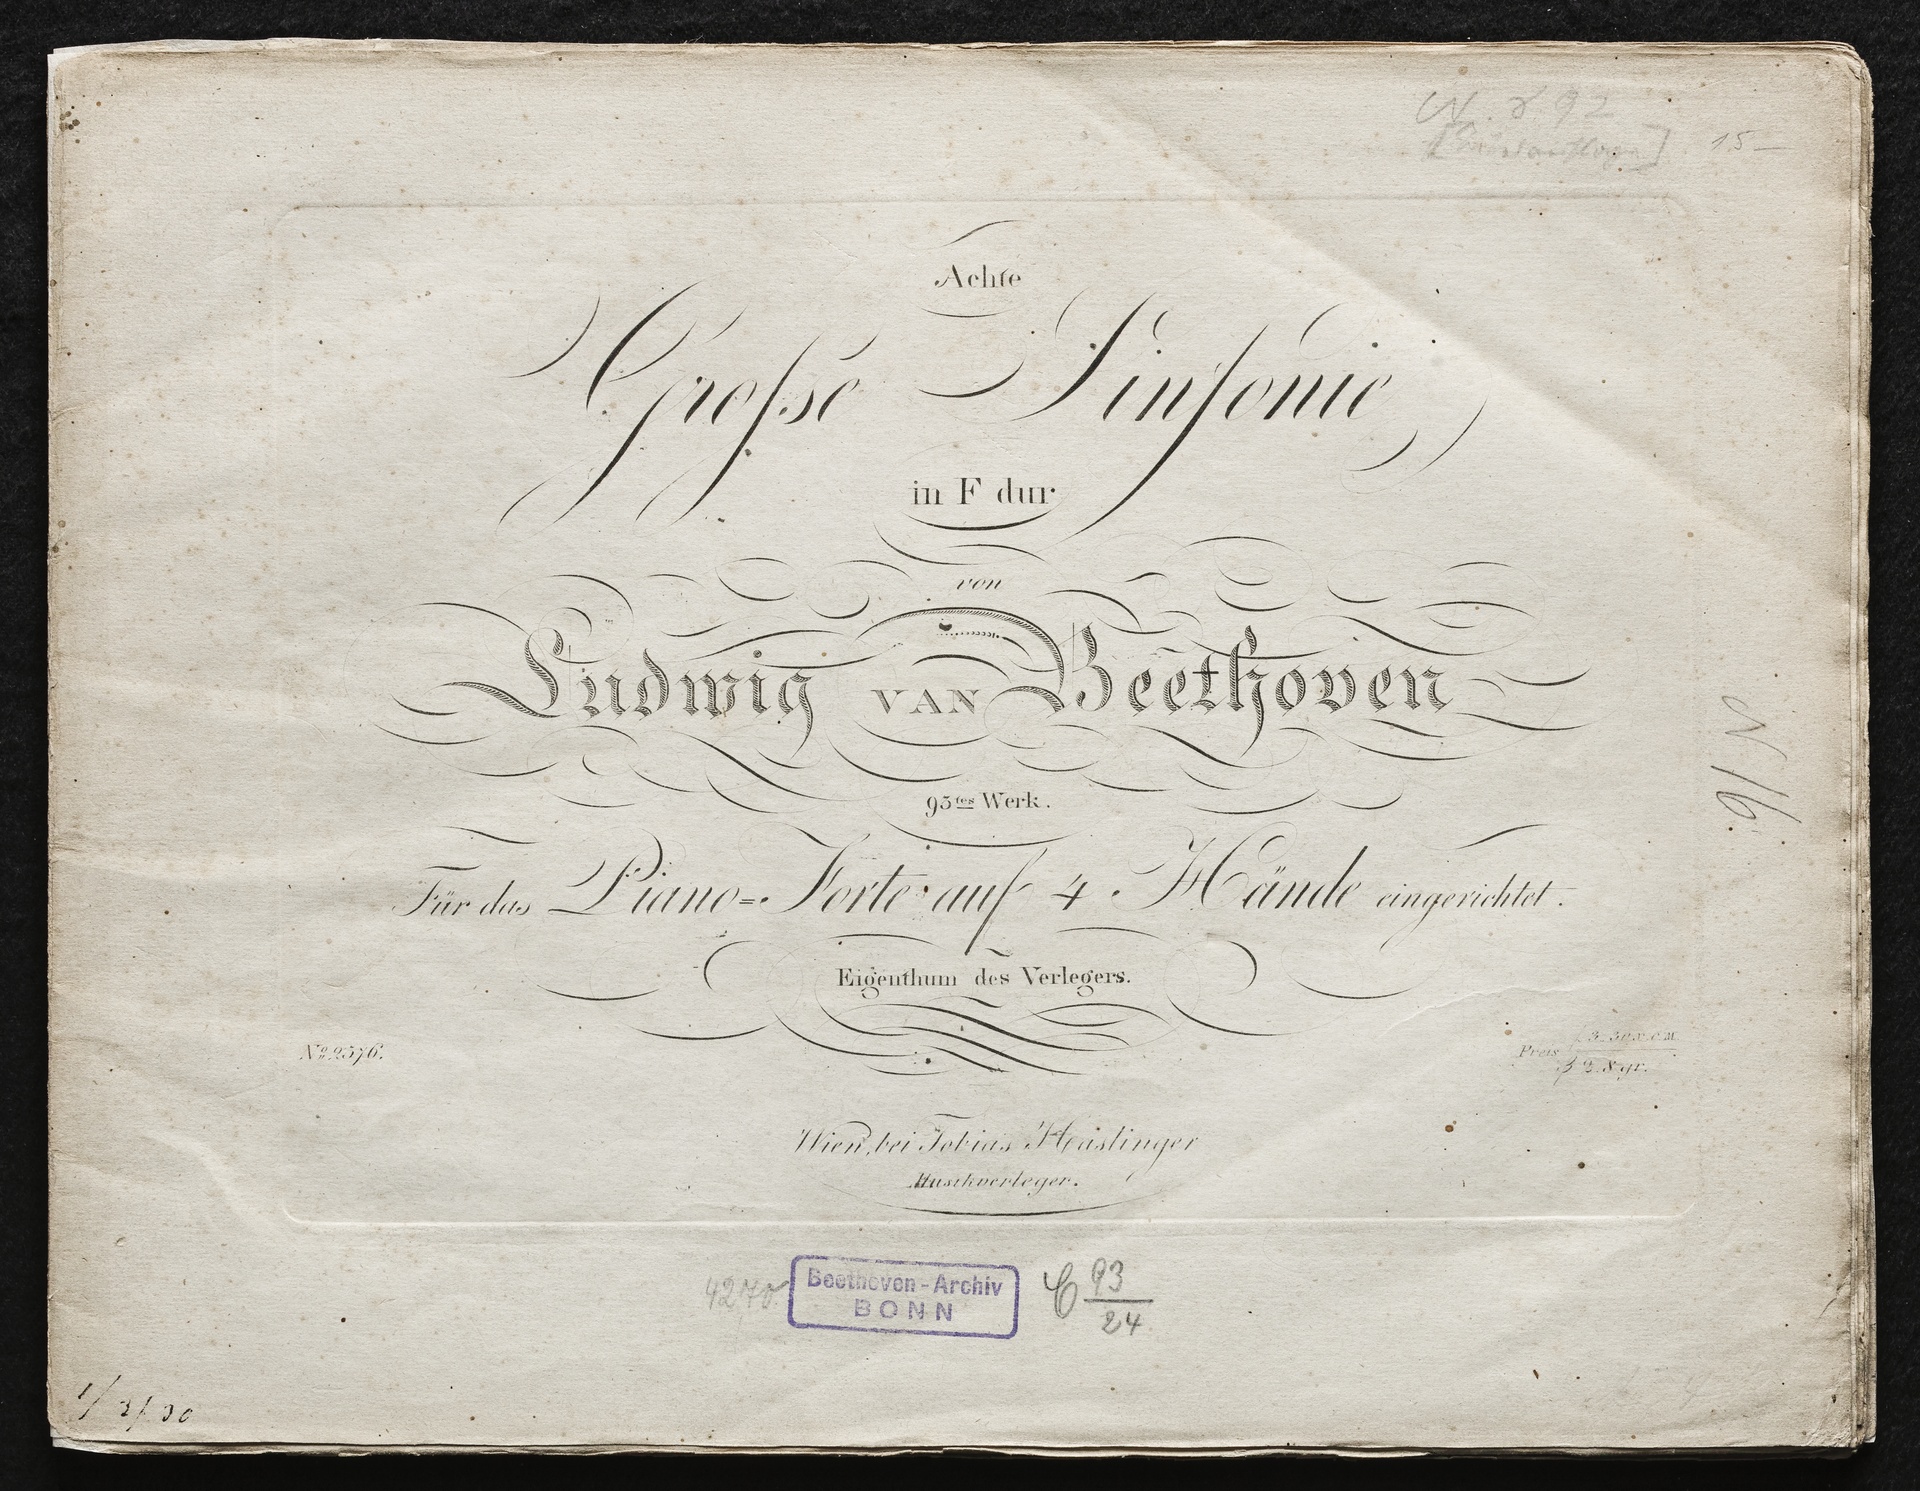 15 —
Achte
Grosse Sinfonie
in F dur
von
Ludwig VAN Beethoven
93tes Werk.
Für das Piano=Forte auf 4 Hände eingerichtet.
Eigenthum des Verlegers.
No. 2376.
Preis
Wien, bei Tobias Haslinger
Musikverleger.
Beethoven-Archiv
BONN
C 93
24
N 16